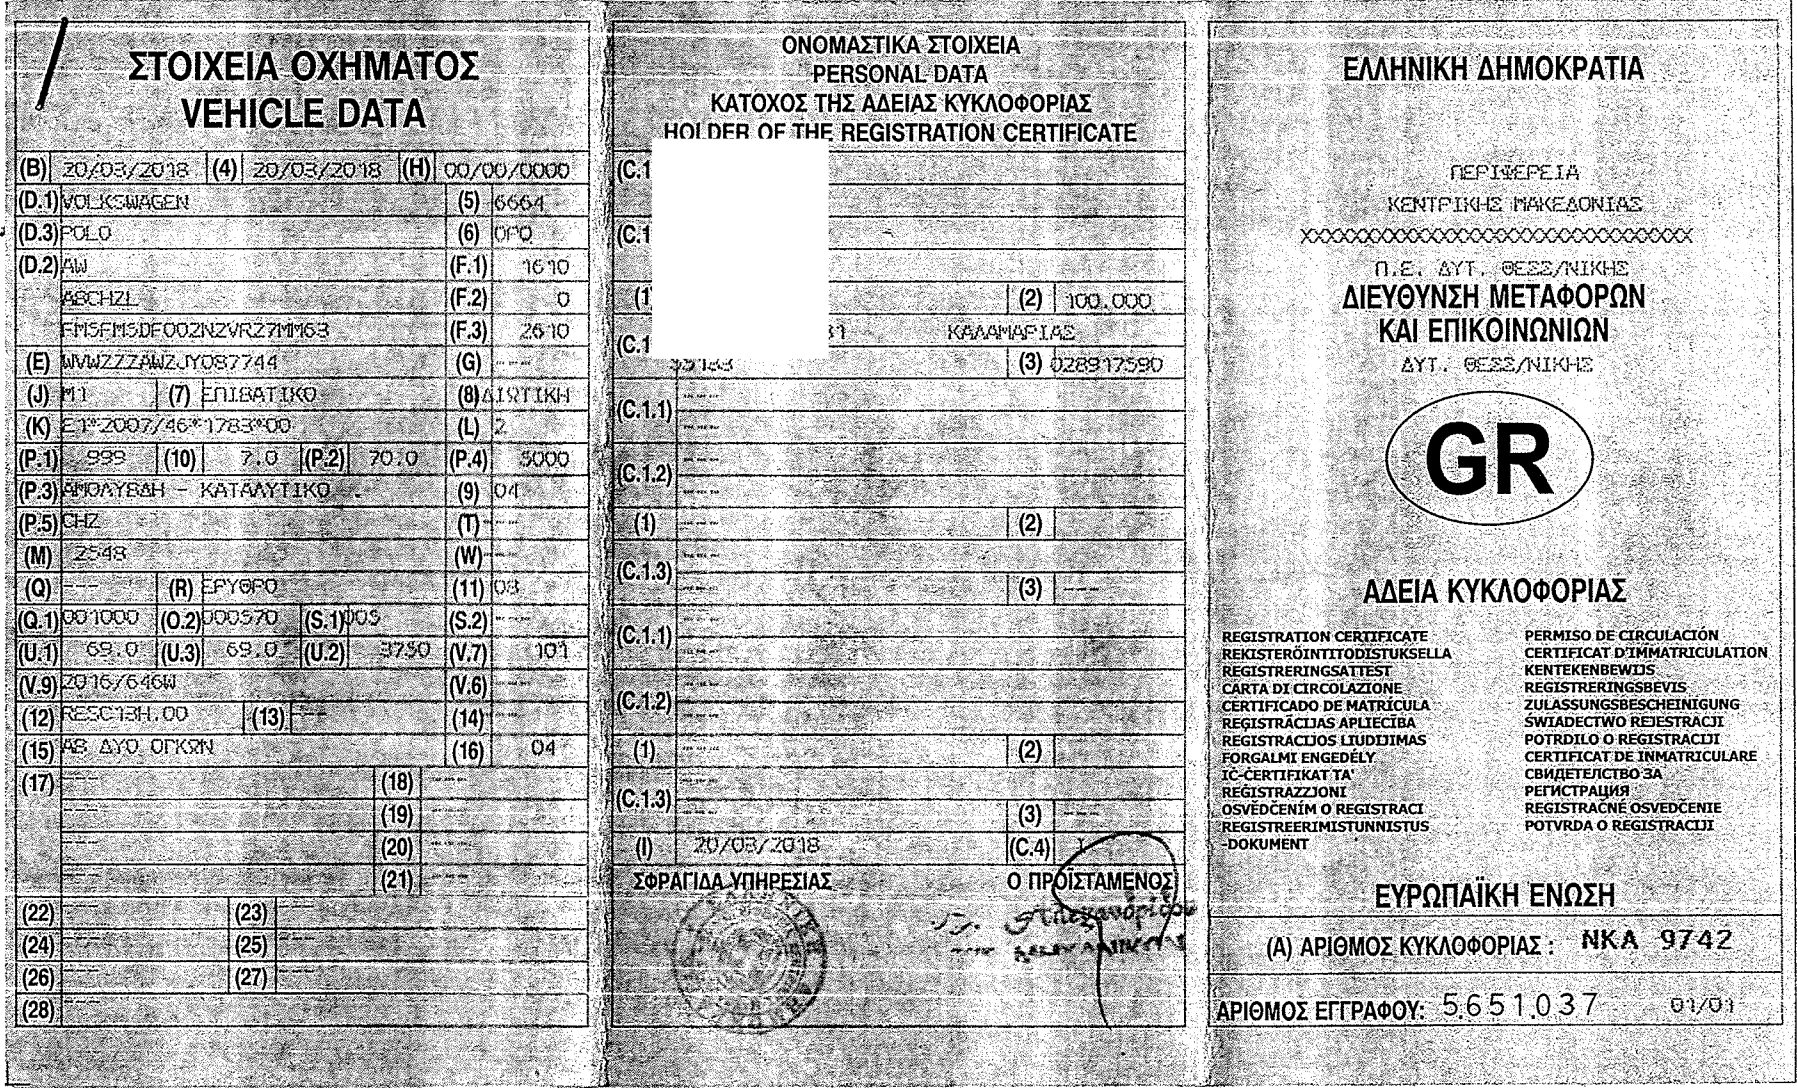 ΣΤΟΙΧΕΙΑ ΟΧΗΜΑΤΟΣ
VEHICLE DATA
(B) 20/03/2018 (4) 20/03/2018 (H) 00/00/0000
(D.1) VOLKSWAGEN (5) 6664
(D.3) POLO (6) ΟΡΟ
(D.2) AW (F.1) 1610
ABCHZL (F.2) 0
FM5FM5DF002N2VR27MM63 (F.3) 2610
(E) WVWZZZAWZJY087744 (G) ---
(J) M1 (7) ΕΠΙΒΑΤΙΚΟ (8) ΔΙΩΤΙΚΗ
(K) E1*2007/46*1783*00 (L) 2
(P.1) 999 (10) 7.0 (P.2) 70.0 (P.4) 5000
(P.3) ΑΜΟΛΥΒΔΗ - ΚΑΤΑΛΥΤΙΚΟ . (9) 04
(P.5) CHZ (T) ---
(M) 2548 (W) ---
(Q) --- (R) ΕΡΥΘΡΟ (11) 03
(Q.1) 001000 (O.2) 000570 (S.1) 005 (S.2) ---
(U.1) 69.0 (U.3) 69.0 (U.2) 3750 (V.7) 101
(V.9) 2016/646W (V.6) ---
(12) RESC13H.00 (13) --- (14) ---
(15) ΑΒ ΔΥΟ ΟΓΚΩΝ (16) 04
(17) --- (18) ---
--- (19) ---
--- (20) ---
--- (21) ---
(22) --- (23) ---
(24) --- (25) ---
(26) --- (27) ---
(28) ---
ΟΝΟΜΑΣΤΙΚΑ ΣΤΟΙΧΕΙΑ
PERSONAL DATA
ΚΑΤΟΧΟΣ ΤΗΣ ΑΔΕΙΑΣ ΚΥΚΛΟΦΟΡΙΑΣ
HOLDER OF THE REGISTRATION CERTIFICATE
(C.1
(C.1
(1 (2) 100.000
(C.1 ΚΑΛΑΜΑΡΙΑΣ
(3) 028917590
(C.1.1) ---
---
(C.1.2) ---
---
(1) --- (2)
(C.1.3) ---
--- (3) ---
(C.1.1) ---
---
(C.1.2) ---
---
(1) --- (2)
(C.1.3) ---
--- (3) ---
(I) 20/03/2018 (C.4) 1
ΣΦΡΑΓΙΔΑ ΥΠΗΡΕΣΙΑΣ Ο ΠΡΟΪΣΤΑΜΕΝΟΣ
ΕΛΛΗΝΙΚΗ ΔΗΜΟΚΡΑΤΙΑ
ΠΕΡΙΦΕΡΕΙΑ
ΚΕΝΤΡΙΚΗΣ ΜΑΚΕΔΟΝΙΑΣ
XXXXXXXXXXXXXXXXXXXXXXXXXXXXXX
Π.Ε. ΔΥΤ. ΘΕΣΣ/ΝΙΚΗΣ
ΔΙΕΥΘΥΝΣΗ ΜΕΤΑΦΟΡΩΝ
ΚΑΙ ΕΠΙΚΟΙΝΩΝΙΩΝ
ΔΥΤ. ΘΕΣΣ/ΝΙΚΗΣ
GR
ΑΔΕΙΑ ΚΥΚΛΟΦΟΡΙΑΣ
REGISTRATION CERTIFICATE
REKISTERÖINTITODISTUKSELLA
REGISTRERINGSATTEST
CARTA DI CIRCOLAZIONE
CERTIFICADO DE MATRÍCULA
REGISTRĀCIJAS APLIECĪBA
REGISTRACIJOS LIUDIJIMAS
FORGALMI ENGEDÉLY
IĊ-ĊERTIFIKAT TA'
REĠISTRAZZJONI
OSVĚDČENÍM O REGISTRACI
REGISTREERIMISTUNNISTUS
-DOKUMENT
PERMISO DE CIRCULACIÓN
CERTIFICAT D'IMMATRICULATION
KENTEKENBEWIJS
REGISTRERINGSBEVIS
ZULASSUNGSBESCHEINIGUNG
ŚWIADECTWO REJESTRACJI
POTRDILO O REGISTRACIJI
CERTIFICAT DE INMATRICULARE
СВИДЕТЕЛСТВО ЗА
РЕГИСТРАЦИЯ
REGISTRAČNÉ OSVEDČENIE
POTVRDA O REGISTRACIJI
ΕΥΡΩΠΑΪΚΗ ΕΝΩΣΗ
(A) ΑΡΙΘΜΟΣ ΚΥΚΛΟΦΟΡΙΑΣ : NKA 9742
ΑΡΙΘΜΟΣ ΕΓΓΡΑΦΟΥ: 5651037 01/01